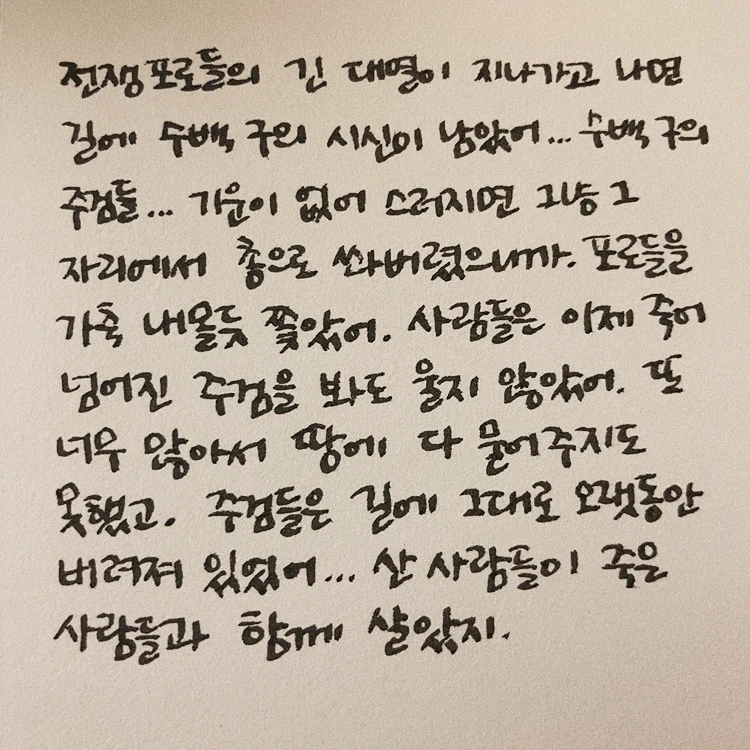 전쟁포로들의 긴 대열이 지나가고 나면
길에 수백 구의 시신이 남았어... 수백 구의
주검들... 기운이 없어 스러지면 그냥 그
자리에서 총으로 쏴버렸으니까. 포로들을
가축 내몰듯 쫓았어. 사람들은 이제 죽어
넘어진 주검을 봐도 울지 않았어. 또
너무 많아서 땅에 다 묻어주지도
못했고. 주검들은 길에 그대로 오랫동안
버려져 있었어... 산 사람들이 죽은
사람들과 함께 살았지.